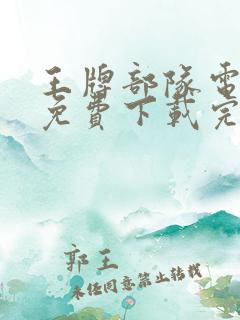 王牌部隊電
免費下載完
郭王
未经同意禁止转载